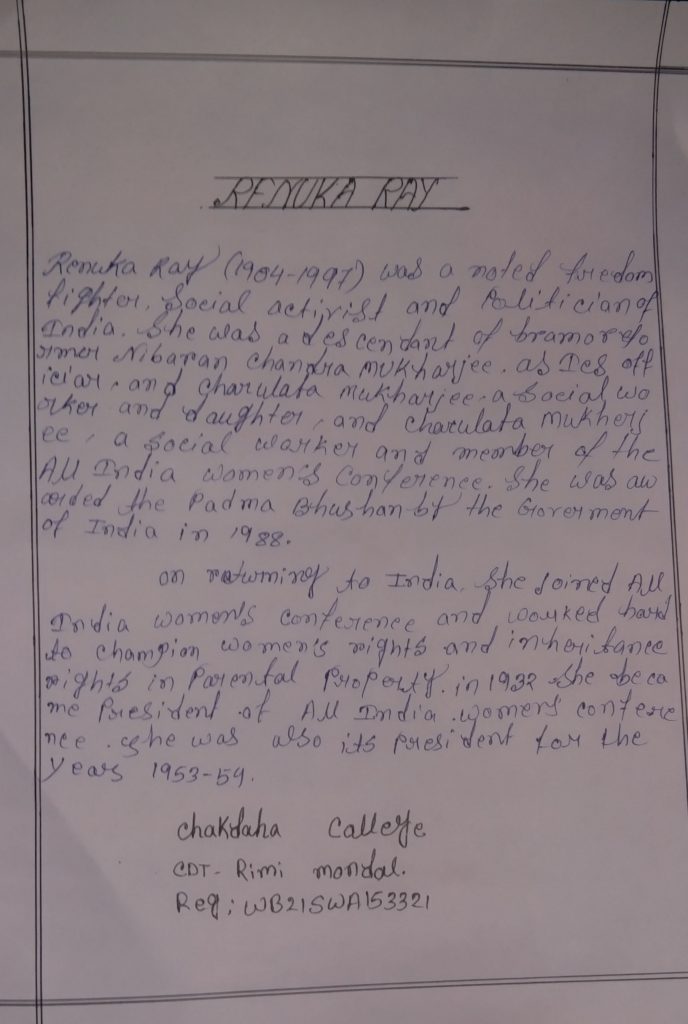 RENUKA RAY
Renuka Ray (1904-1997) was a noted freedom
fighter. Social activist and Politician of
India. She was a descendant of bramo refo
rmer Nibaran Chandra Mukharjee. as Ics off
iciar, and Charulata Mukharjee. a social wo
rker and daughter, and Charulata Mukherj
ee, a social warker and member of the
All India women's Conference. She was aw
arded the Padma Bhushan by the Goverment
of India in 1988.
on returning to India. She Joined All
India women's conference and worked hard
to champion women's rights and inheritance
rights in Parental Property. in 1932 she beca
me President of All India women's confere
nce. She was also its president for the
years 1953-54.
Chakdaha College
CDT- Rimi mondal.
Reg: WB21SWA153321